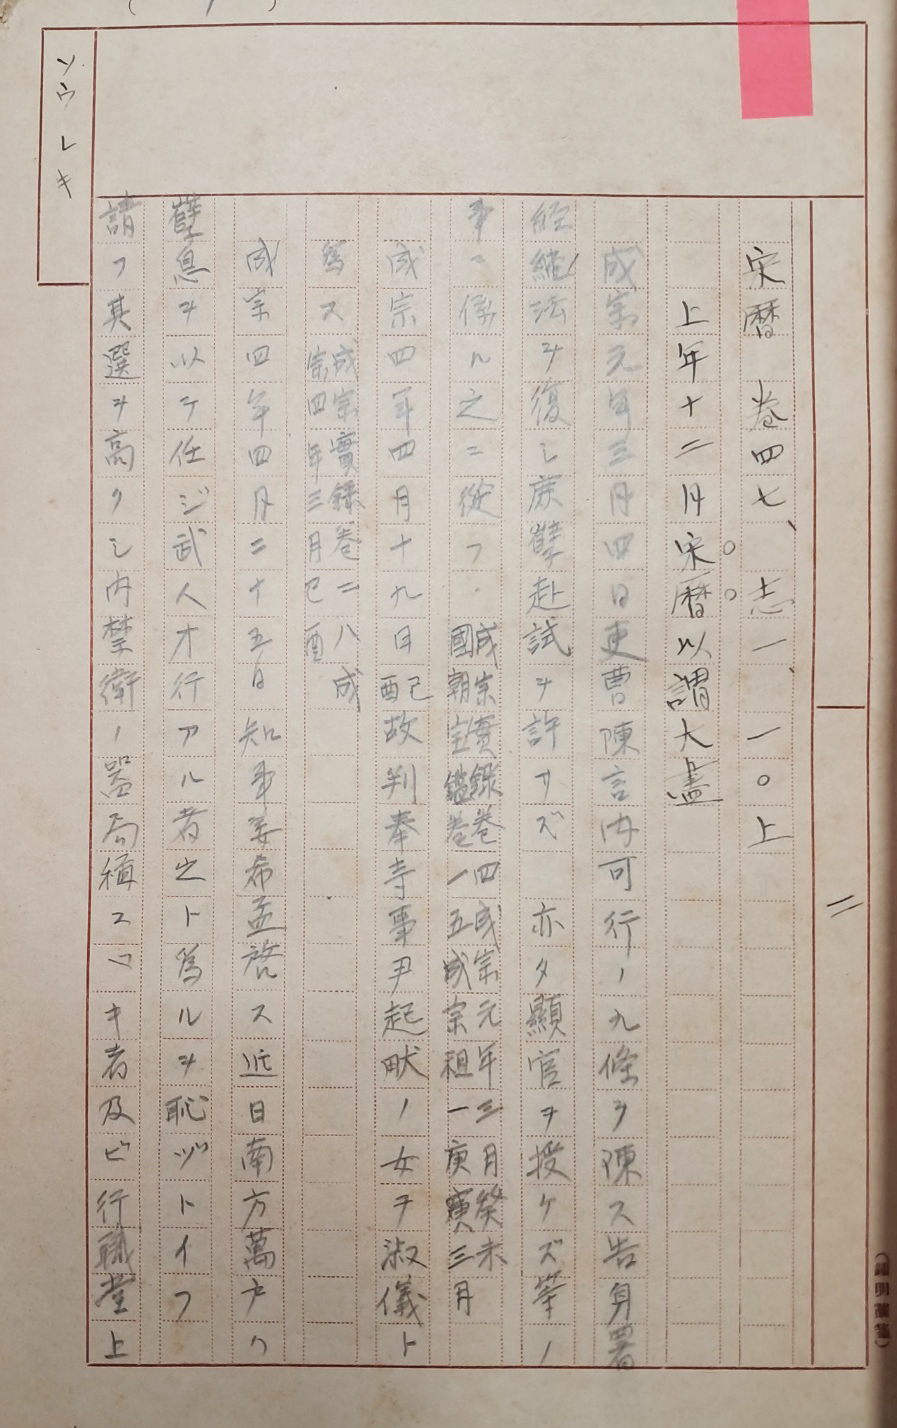 ソウレキ
二
宋暦　卷四七、志一、一〇上
上年十二月宋暦以謂大盡
成宗元年三月四日吏曹陳言内可行ノ九條ヲ陳ス告身署
經縮法ヲ復シ庶孼赴試ヲ許サズ　亦タ顯官ヲ授ケズ等ノ
事ニ係ル之ニ從フ．成宗實録卷四成宗元年三月癸未
國朝宝鑑卷一五成宗祖一庚寅三月
成宗四年四月十九日配故判奉寺事尹起畎ノ女ヲ淑儀ト
爲ス成宗實録卷二八成
宗四年三月己酉
成宗四年四月二十五日知事姜希孟啓ス近日南方萬戸ハ
孼息ヲ以テ任ジ武人才行アル者之ト爲ルヲ恥ヅトイフ
請フ其選ヲ高クシ内禁衛ノ器局稱スベキ者及ビ行職堂上